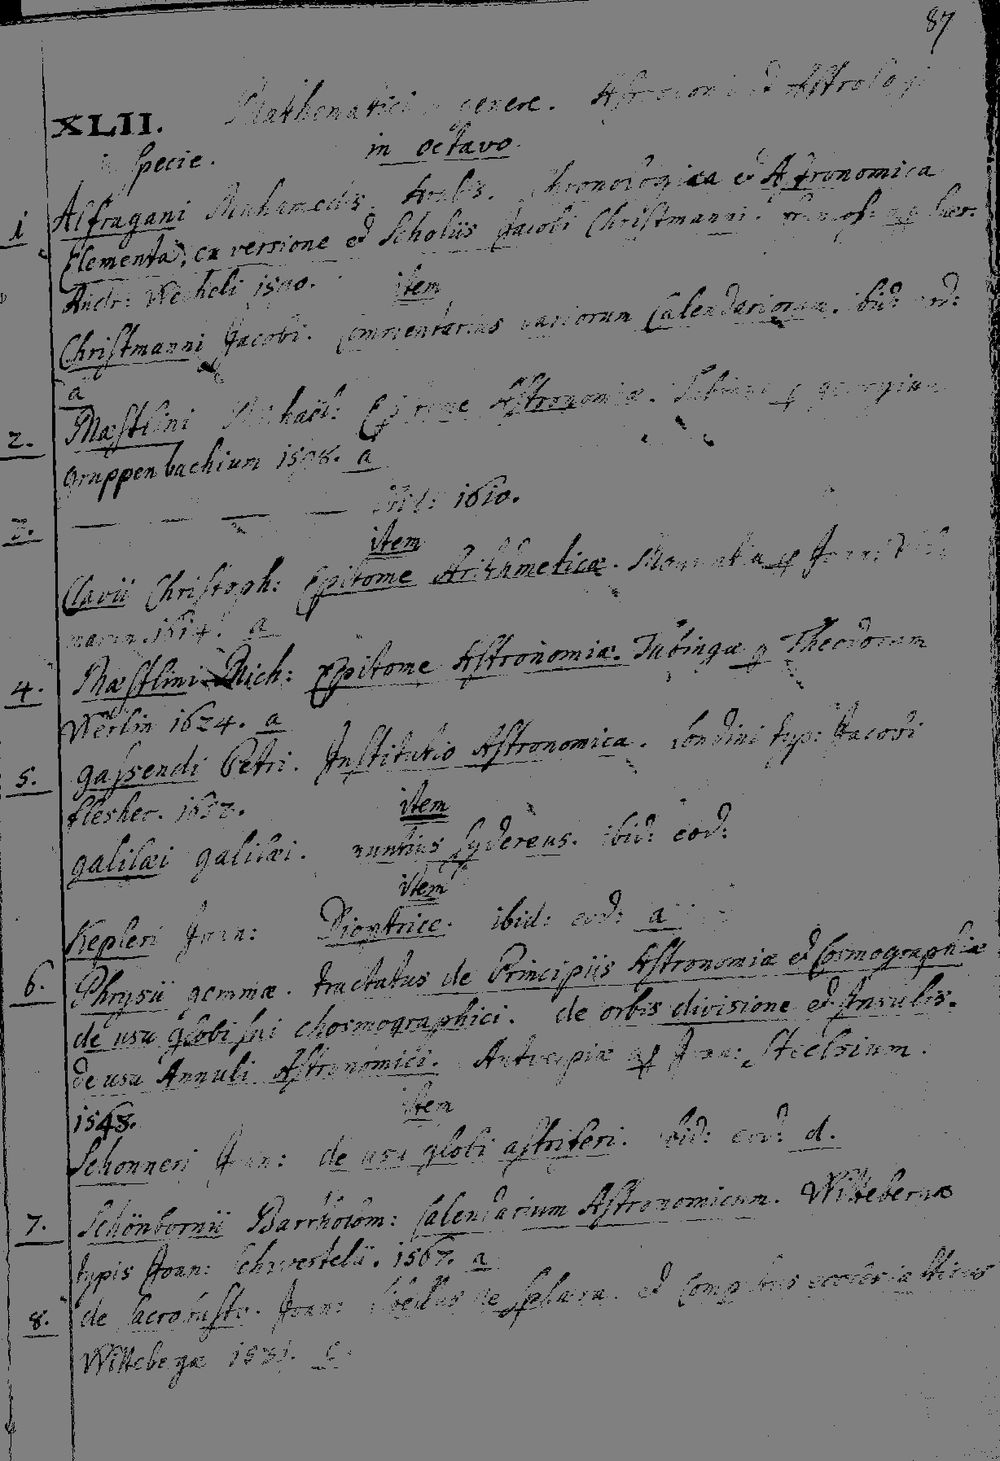 87
XLII. Mathematici genere. Astrologi
specie. in octavo.
1 Alfragani Muhamedis. Arabis. Chronologica et Astronomica
Elementa, ex versione et Scholiis Jacobi Christmanni.
Andr: Wecheli 1590. item
Christmanni Jacobi. Commentarius variorum Calendariorum. ibid:
a
2. Mæstlini Michaël: Epitome Astronomiæ.
gruppenbachium 1598. a
3. — — — — ibid: 1610.
item
Clavii Christoph: Epitome Arithmeticæ. Joan:
1614. a
4. Mæstlini Mich: Epitome Astronomiæ. Tubingæ p Theodorum
Werlin 1624. a
5. gassendi Petri. Institutio Astronomica. Londini typ: Jacobi
flesher. item
galilæi galilæi. nuntius sydereus. ibid: eod:
item
Kepleri Joan: Dioptrice. ibid: eod: a
6. Phrysii gemmæ. tractatus de Principiis Astronomiæ et Cosmographiæ
de usu globi sui chosmographici. de orbis divisione et Insulis.
de usu Annuli Astronomici. Antverpiæ Joan: Steelsium.
1548. item
Schonneri Joan: de usu globi astriferi. ibid: eod: d.
7. Schönbornii Barthólom: Calendarium Astronomicum. Wittebernæ
typis Joan: Schwertelii. 1567. a
8. de Sacrobusto. Joan: libellus de Sphæra. et ecclesiasticus
Wittebegæ